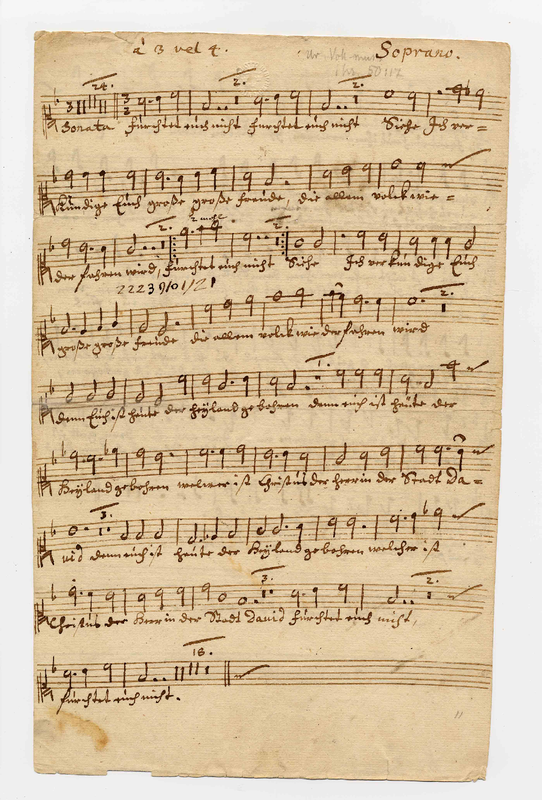 à 3 vel 4. Soprano.
24. 2. 2.
Sonata fürchtet euch nicht fürchtet euch nicht Siehe Ich ver=
kündige Euch große große freude, die allem volck wie=
2.
der fahren wird, fürchtet euch nicht Siehe Ich verkündige Euch
22239/01/21
große große freude die allem volck wiederfahren wird
2.
denn Euch ist heute der heyland gebohren denn euch ist heute der
Heyland gebohren welcher ist Christus der herr in der Stadt Da=
3.
vid denn euch ist heute der Heyland gebohren welcher ist
3. 2.
Christus der Herr in der Stadt David fürchtet euch nicht,
18.
fürchtet euch nicht.